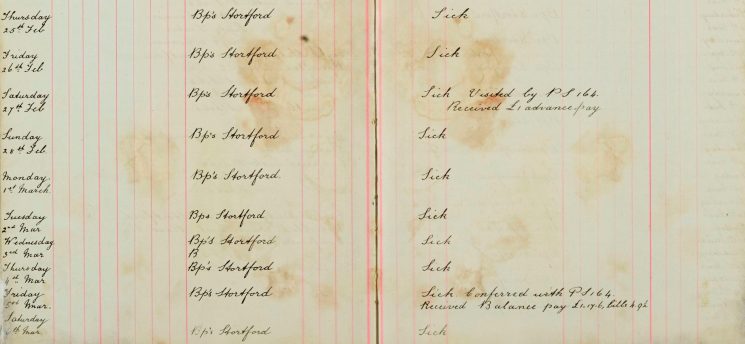 Thursday Bp's Stortford Sick
25th Feb
Friday Bp's Stortford Sick
26th Feb
Saturday Bp's Stortford Sick Visited by PS 164.
27th Feb Received £1 advance pay
Sunday Bp's Stortford Sick
28th Feb
Monday. Bp's Stortford. Sick
1st March
Tuesday Bps Stortford Sick
2nd Mar
Wednesday Bp's Stortford Sick
3rd Mar B
Thursday Bp's Stortford Sick
4th Mar
Friday Bp's Stortford Sick Conferred with PS 164.
5th Mar Received Balance pay £1.17.6,
Saturday Bp's Stortford Sick
6th Mar.